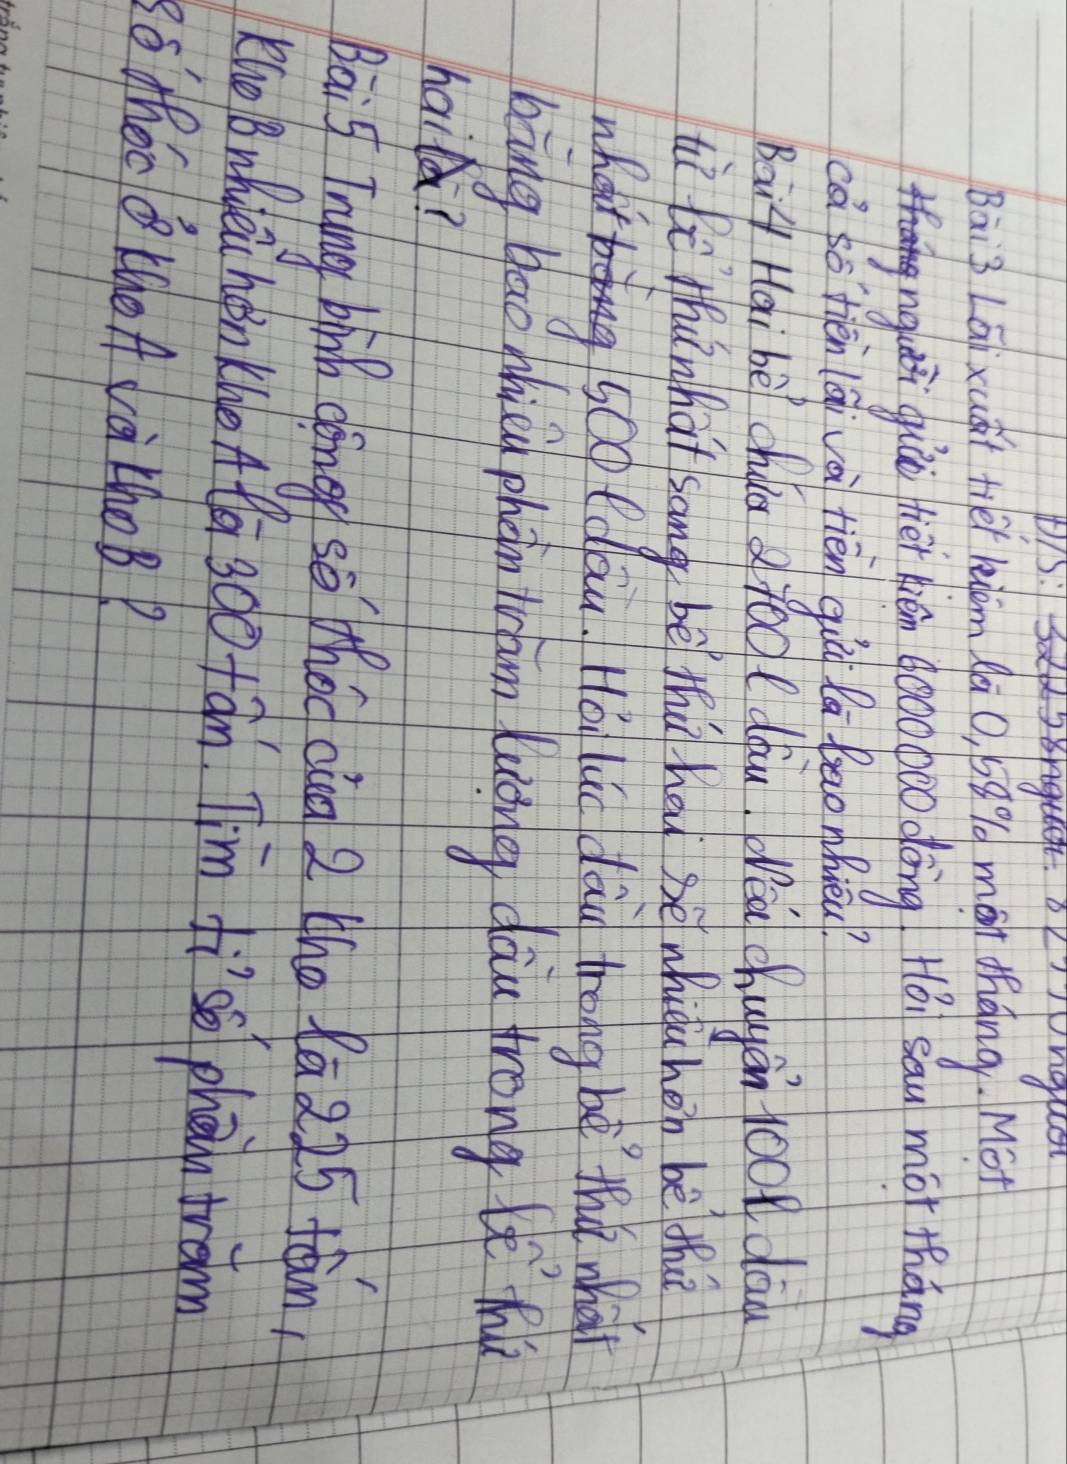 Đ/S:
Bài 3 Lãi xuất tiết kiệm là 0,58% một tháng. Một
người gửi tiết kiệm 6000 000 đồng. Hỏi sau một tháng
cả số tiền lãi và tiền gửi là bao nhiêu?
Bài 4 Hai bể chứa 2700l dầu. Nếu chuyển 100l dầu
từ bể thứ nhất sang bể thứ hai sẽ nhiều hơn bể thứ
nhất 500l dầu. Hỏi lúc đầu trong bể thứ nhất
bằng bao nhiêu phần trăm lượng dầu trong bể thứ
hai là?
Bài 5 Trung bình cộng số thóc của 2 kho là 225 tấn,
kho B nhiều hơn kho A là 300 tấn. Tìm tỉ số phần trăm
số thóc ở kho A và kho B?